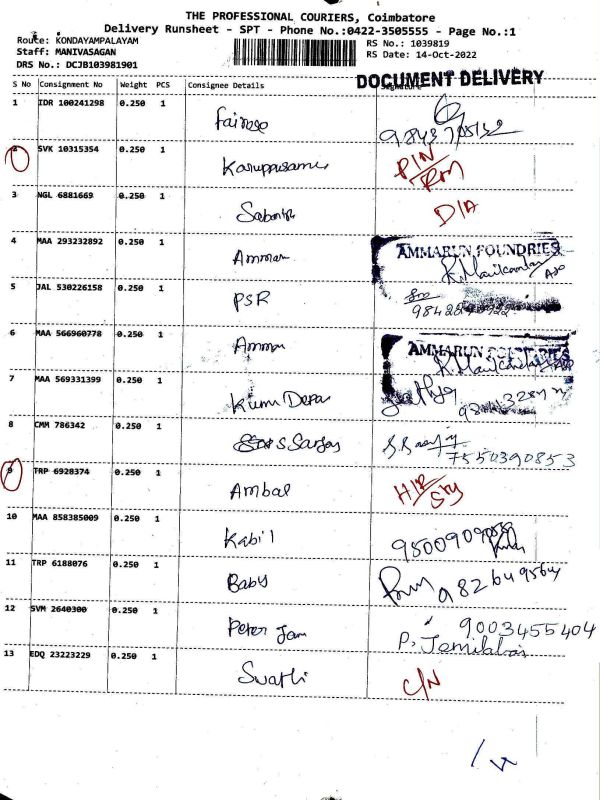 THE PROFESSIONAL COURIERS, Coimbatore
Delivery Runsheet - SPT - Phone No.:0422-3505555 - Page No.:1
Route: KONDAYAMPALAYAM
Staff: MANIVASAGAN
DRS No.: DCJB103981901
RS No.: 1039819
RS Date: 14-Oct-2022
DOCUMENT DELIVERY
S No Consignment No Weight PCS Consignee Details Signature
1 IDR 100241298 0.250 1
SVK 10315354 0.250 1 PIN/RM
3 NGL 6881669 0.250 1 D/A
4 MAA 293232892 0.250 1 Amman AMMARUN FOUNDRIES
5 JAL 530226158 0.250 1 PSR
6 MAA 566960778 0.250 1 Amman AMMARUN FOUNDRIES
7 MAA 569331399 0.250 1
8 CMM 786342 0.250 1 7550390853
9 TRP 6928374 0.250 1 Ambal
10 MAA 858385009 0.250 1 Kabil
11 TRP 6188076 0.250 1 Baby
12 SVM 2640300 0.250 1 Peter Jam 9003455404
13 EDQ 23223229 0.250 1 Swathi C/N